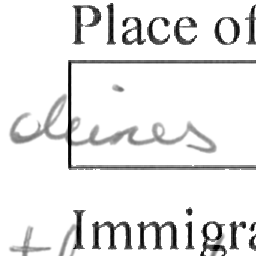 Place of
deines
Immigra